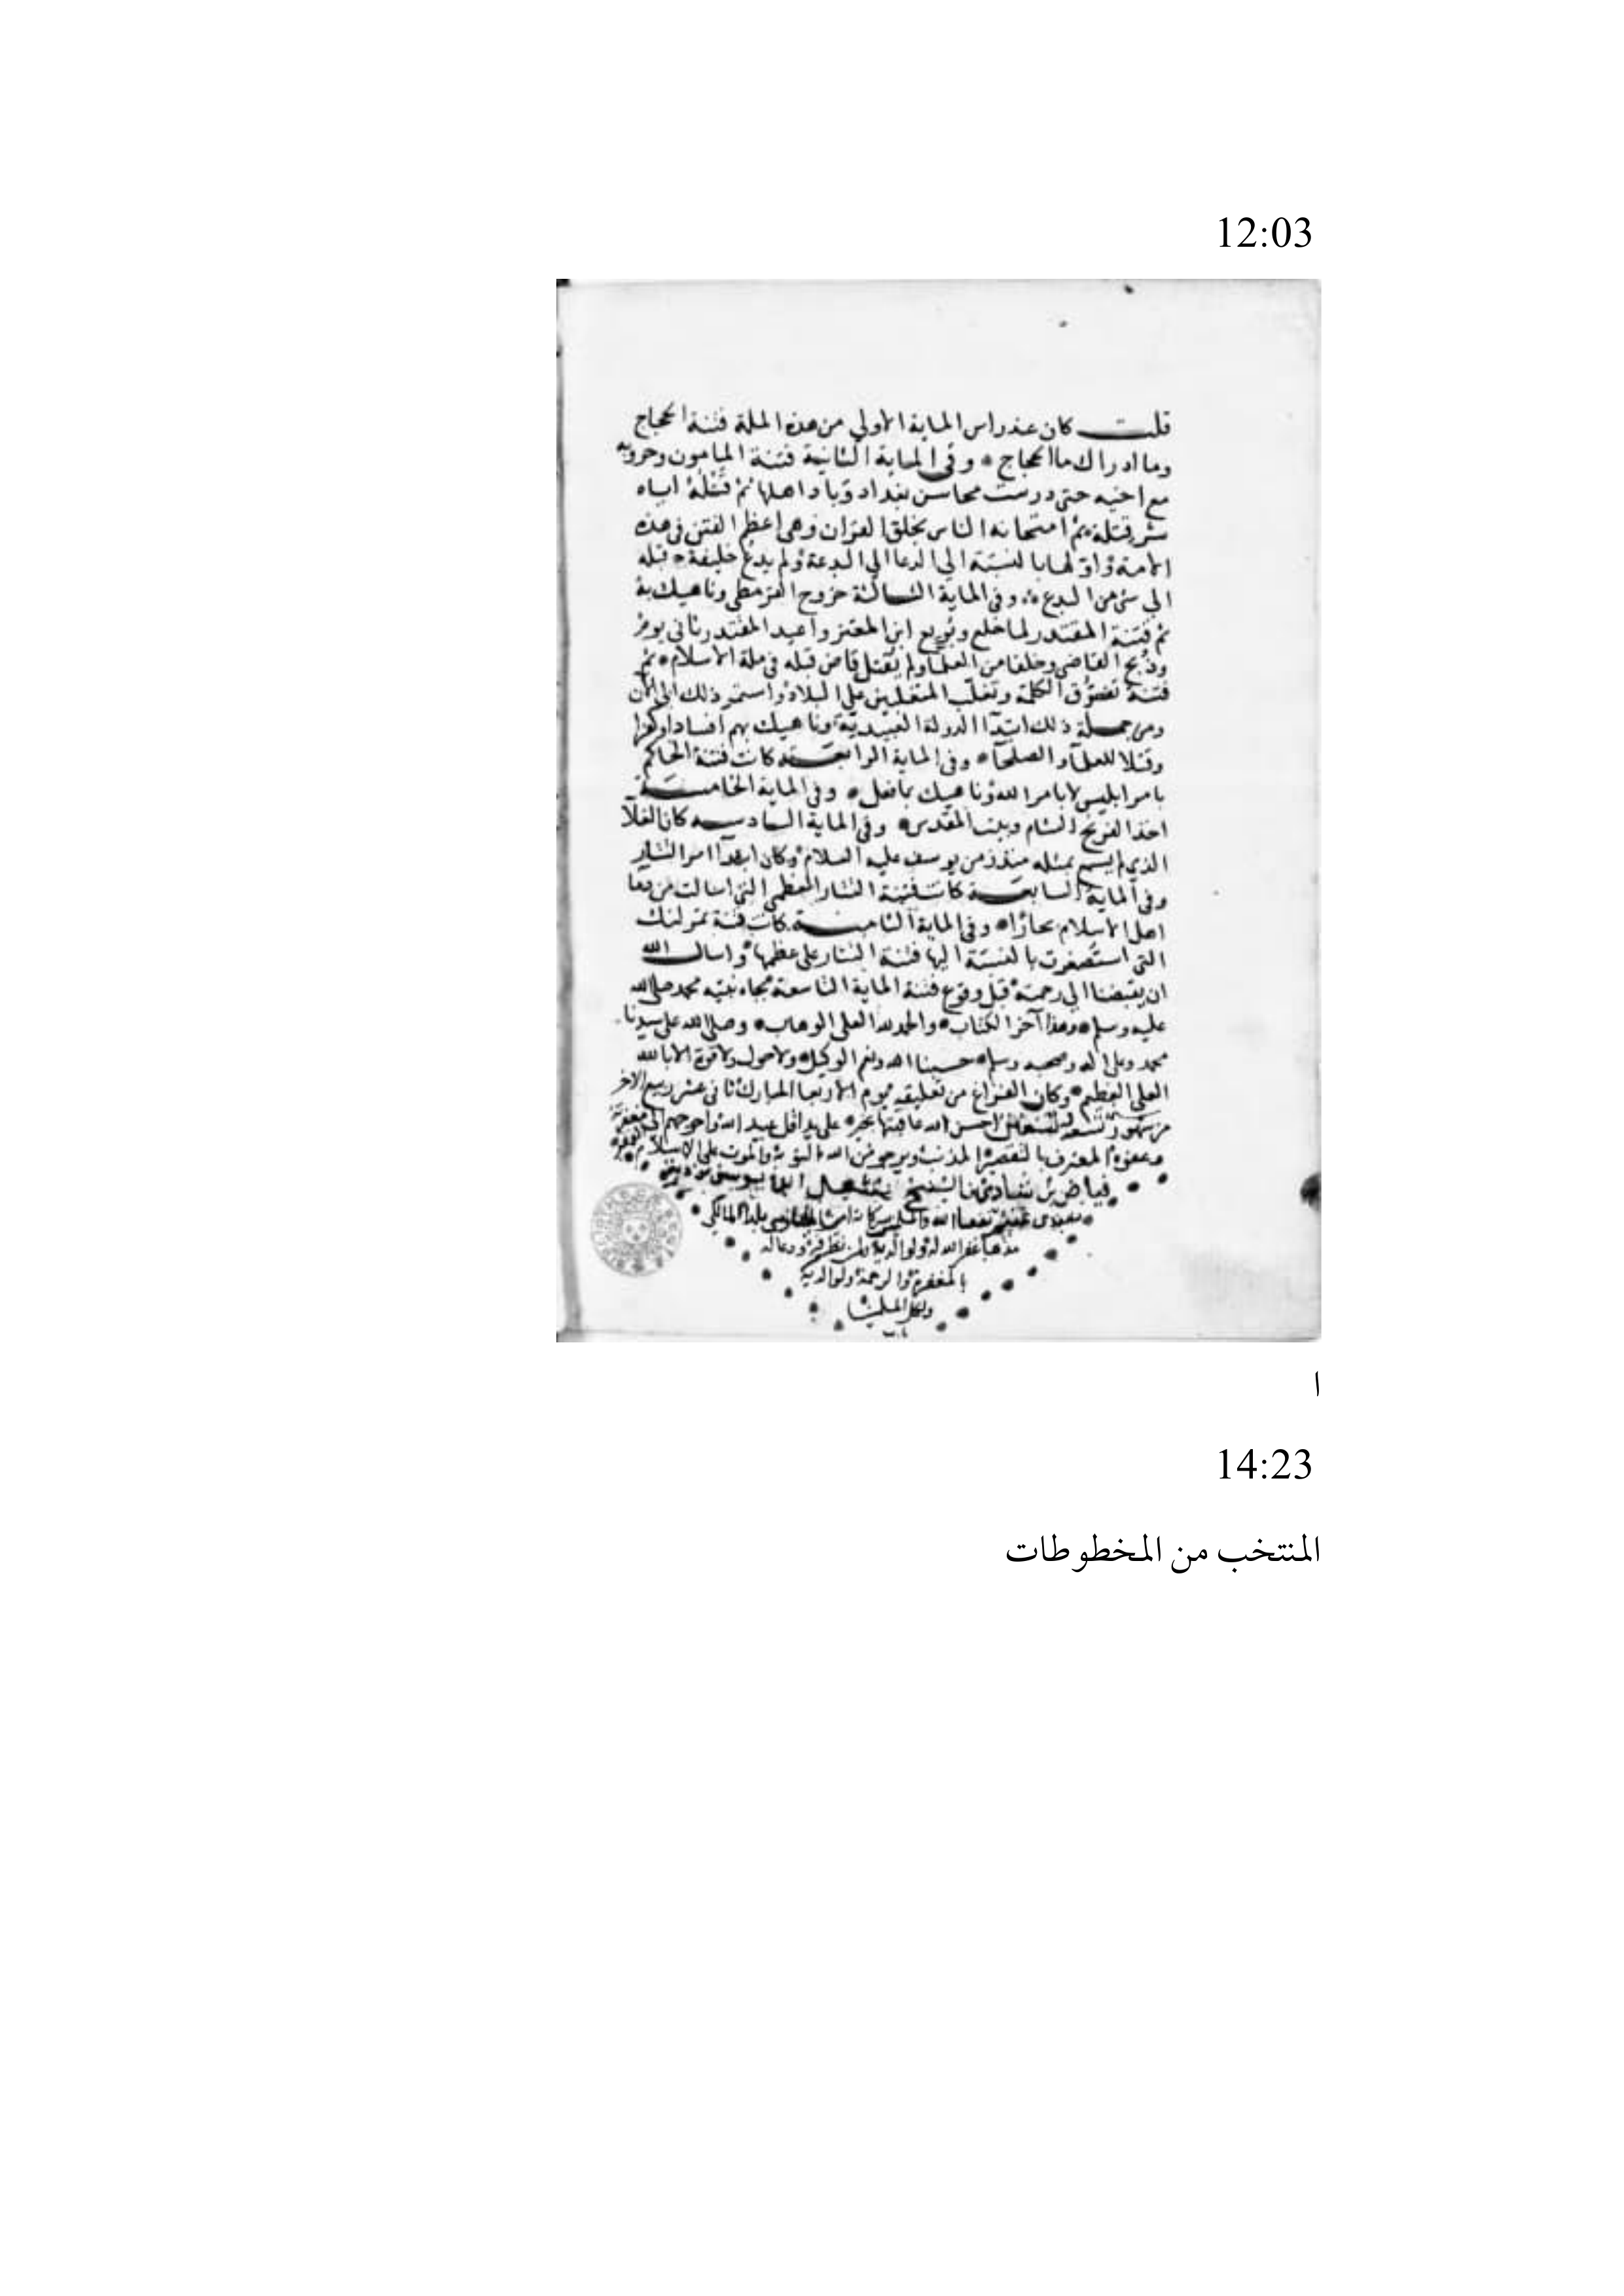 12:03
قلت كان عند راس الماية الاولى من هذه الملة فتنة الحجاج
وما ادراك ما الحجاج وفى الماية الثانية فتنة المامون وحروبه
مع اخيه حتى درست محاسن بغداد وباد اهلها ثم قتلة اياه
شر قتلة ثم امتحانه الناس بخلق القران وهى اعظم الفتن فى هذه
الامة واولها بالنسبة الى الدعا الى البدعة ولم يدع خليفة قبله
الى شى من البدع وفى الماية الثالثة خروج القرمطى وناهيك به
ثم فتنة المقتدر لما خلع وبويع ابن المعتز واعيد المقتدر ثانى يوم
وذبح القاضى وخلقا من العلما ولم يقتل قاض قبله فى ملة الاسلام ثم
فتنة تفرق الكلمة وتغلب المتغلبين على البلاد واستمر ذلك الى الان
ومن جملة ذلك ابتدا الدولة العبيدية وناهيك بهم افسادا وكفرا
وقتلا للعلما والصلحا وفى الماية الرابعة كانت فتنة الحاكم
بامر ابليس لا بامر الله وناهيك بما فعل وفى الماية الخامسة
اخذ الفرنج الشام وبيت المقدس وفى الماية السادسة كان الغلا
الذى لم يسمع بمثله منذ زمن يوسف عليه السلام وكان ابتدا امر التتار
وفى الماية السابعة كانت فتنة التتار العظمى التى اسالت من دما
اهل الاسلام بحارا وفى الماية الثامنة كانت فتنة تمرلنك
التى استصغرت بالنسبة اليها فتنة التتار على عظمها واسال الله
ان يقبضنا الى رحمته قبل وقوع فتنة الماية التاسعة بجاه نبيه محمد صلى الله
عليه وسلم وهذا آخر الكتاب والحمد لله العلى الوهاب وصلى الله على سيدنا
محمد وعلى اله وصحبه وسلم حسبنا الله ونعم الوكيل ولا حول ولا قوة الا بالله
العلى العظيم وكان الفراغ من تعليقه يوم الاربعا المبارك ثانى عشر ربيع الاخر
من شهور احسن الله عاقبتها بخير على يد اقل عبيد الله واحوجهم الى مغفرته
وعفوه المعترف بالتقصير المذنب ويرجو من الله التوبة والموت على الاسلام
فياض بن
المالكى
مذهبا غفر الله له ولوالديه ولمن نظر فيه ودعا له
بالمغفرة والرحمة ولوالديه
ولكل المسلمين
ا
14:23
المنتخب من المخطوطات